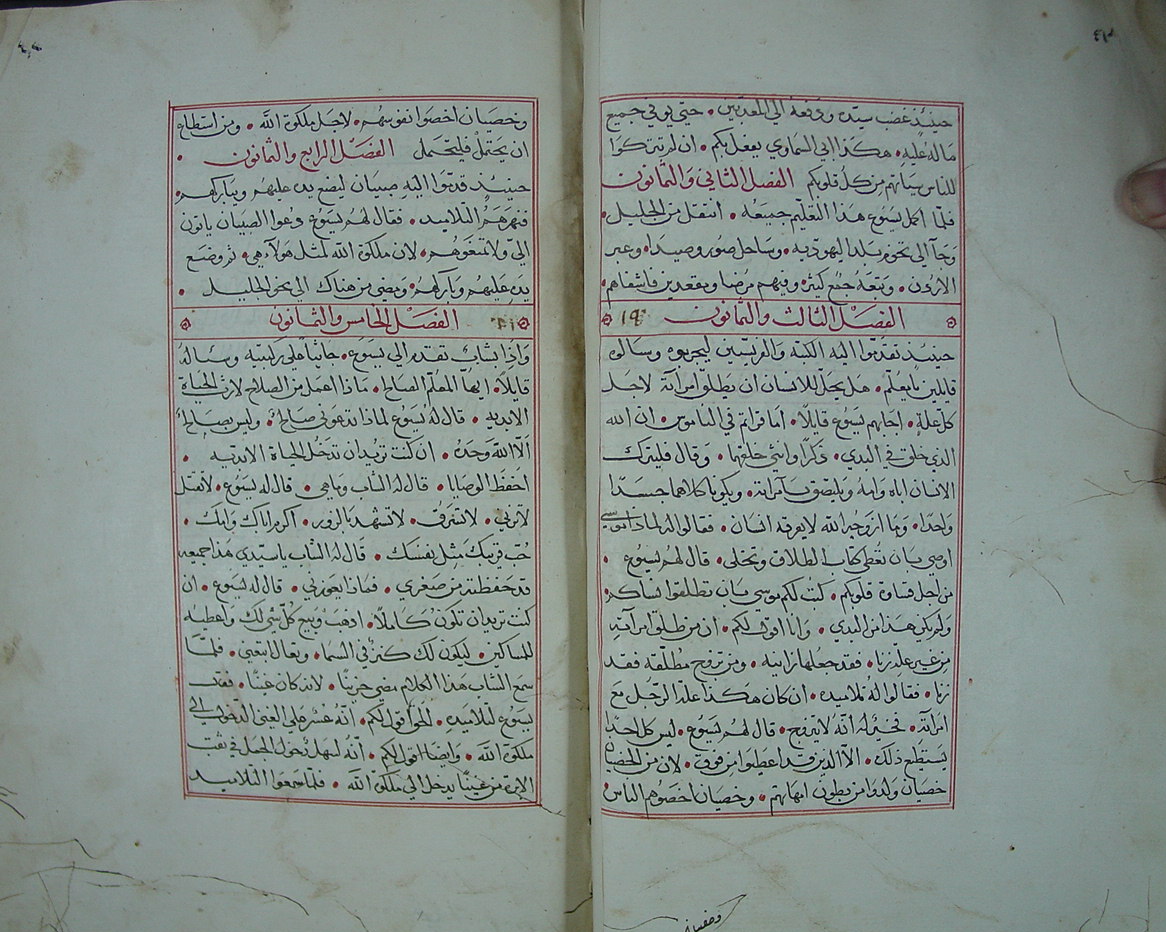 ٤٣
حينئذ غضب سيده ودفعه الي المعذبين • حتي يوفي جميع
ماله عليه • هكذا ابي السماوي يفعل بكم • ان لم تتركوا
للناس سياتهم من كل قلوبكم الفصل الثاني والثمانون
فلما اكمل يسوع هذا التعليم جميعه • انتقل من الجليل •
وجآ الي نحو بلد اليهوديه • وساحل صور وصيدا • وعبر
الاردن • وتبعه جمع كثير • وفيهم مرضا ومقعدين فاشفاهم
الفصل الثالث والثمانون ١٩
حينيذ تقدموا اليه الكتبه والفريسين ليجربوه وسالوه
قايلين يا معلم • هل يحل للانسان ان يطلق امراته لاجل
كل علة • اجابهم يسوع قايلاً • اما قراتم في الناموس • ان الله
الذي خلق في البدي • ذكرًا وانثي خلقهما • وقال فليترك
الانسان اباه وامه ويلتصق بامراته • ويكونا كلاهما جسدًا
واحدا • وما ازوجه الله لا يفرقه انسان • فقالوا له لماذا موسي
اوصي بان نعطي كتاب الطلاق وتخلي • قال لهم يسوع •
من اجل قساوة قلوبكم • كتب لكم موسي بان تطلقوا نساكم •
ولم يكن هذا من البدي • وانا اقول لكم • ان من طلق امراته
من غير علة زنا • فقد جعلها زانيه • ومن تزوج مطلقه فقد
زنا • فقالوا له تلاميده • ان كان هكذا علة الرجل مع
امراته • فخير له انه لا يتزوج • قال لهم يسوع • ليس كل احد
يستطيع ذلك • الا الذين قد اعطيوا من فوق • لان من الخصيان
خصيان ولدوا من بطون امهاتهم • وخصيان اخصوهم الناس
وخصيان
٤٤
وخصيان اخصوا نفوسهم • لاجل ملكوة الله • ومن استطاع
ان يحتمل فليحتمل الفصل الرابع والثمانون •
حينيذ قدموا اليه صبيان ليضع يده عليهم ويباركهم •
فنهرهم التلاميد • فقال لهم يسوع دعوا الصبيان ياتون
الي ولا تمنعوهم • لان ملكوة الله لمثل هولاء هي • ثم وضع
يده عليهم وباركهم • ومضي من هناك الي نحو الجليل •
الفصل الخامس والثمانون
واذا شاب تقدم الي يسوع • جاثيا علي ركبتيه وساله
قايلاً • ايها المعلم الصالح • ماذا اعمل من الصلاح لارث الحياة
الابديه • قال له يسوع لماذا تدعوني صالحاً • وليس صالحاً
الا الله وحده • ان كنت تريد ان تدخل الحياة الابديه •
احفظ الوصايا • قال له الشاب وما هي • قال له يسوع • لا تقتل
لا تزني • لا تسرق • لا تشهد بالزور • اكرم اباك وامك •
حب قريبك مثل نفسك • قال له الشاب يا سيدي هذا جميعه
قد حفظته من صغري • فماذا يعوزني • قال له يسوع • ان
كنت تريد ان تكون كاملاً • اذهب وبيع كل شي لك واعطيه
للمساكين • ليكون لك كنز في السما • وتعال اتبعني • فلما
سمع الشاب هذا الكلام مضي حزينا • لانه كان غنيا • فقال
يسوع لتلاميده • الحق اقول لكم • انه عسر علي الغني الدخول الي
ملكوة الله • وايضا اقول لكم • انه لسهل دخول الجمل في ثقب
الابره من غنيا يدخل الي ملكوة الله • فلما سمعوا التلاميد